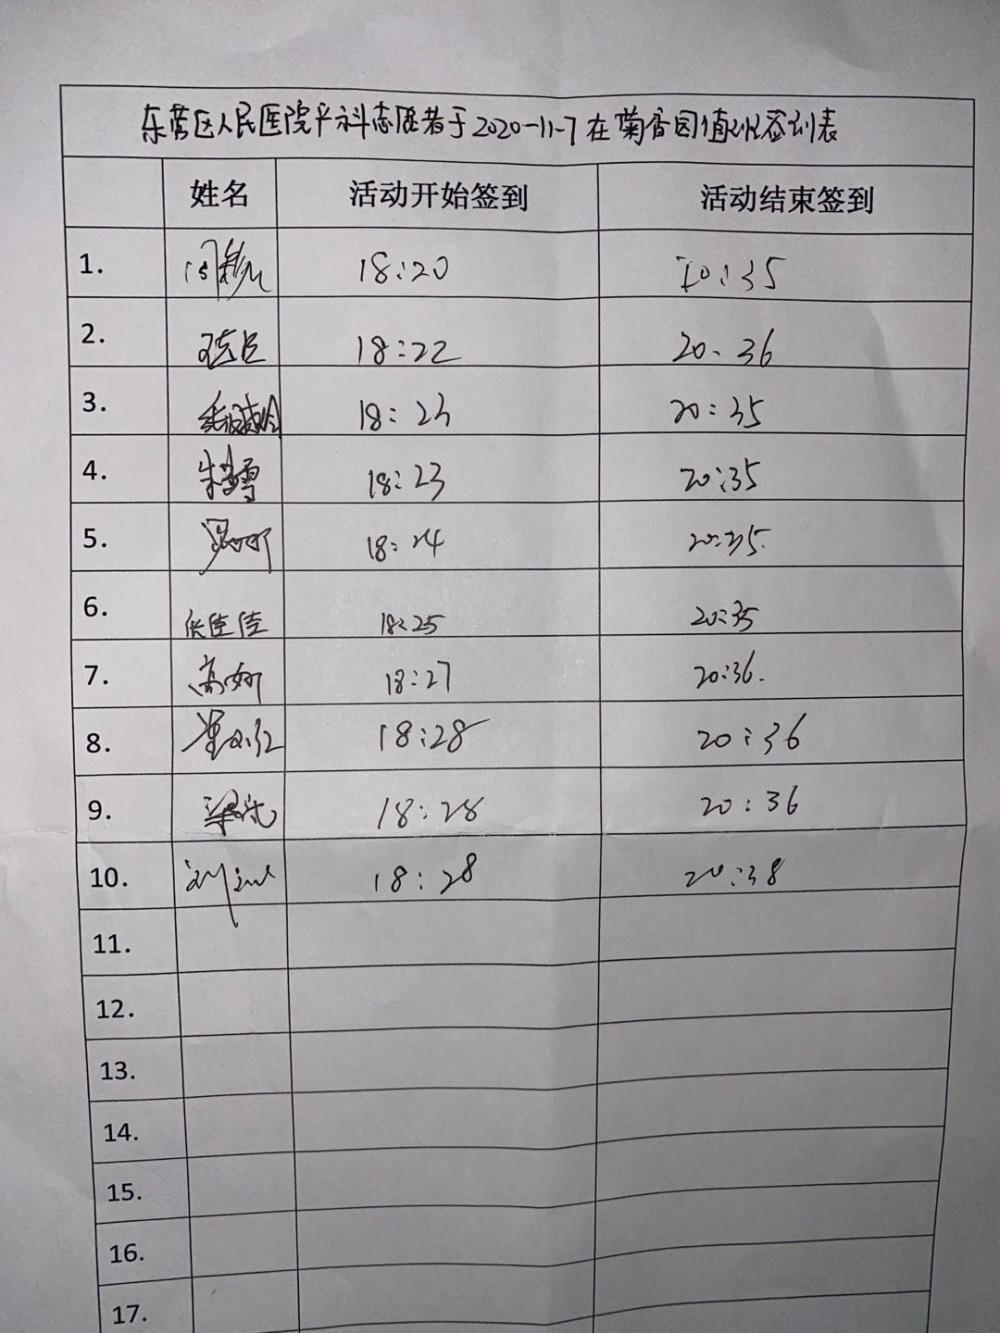 东营区人民医院产科志愿者于2020-11-7在菊香园值班签到表
姓名 活动开始签到 活动结束签到
1. 18:20 20:35
2. 18:22 20.36
3. 18:23 20:35
4. 朱雪 18:23 20:35
5. 18:24 20:35.
6. 张佳佳 18:25 20:35
7. 高娜 18:27 20:36.
8. 18:28 20:36
9. 18:28 20:36
10. 18:28 20:38
11.
12.
13.
14.
15.
16.
17.